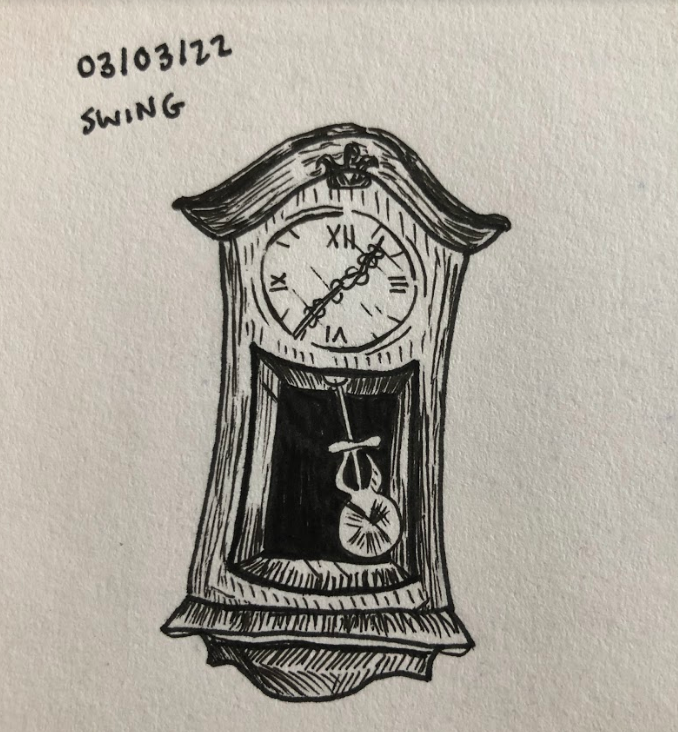 03/03/22
SWING
XII
IX
III
VI